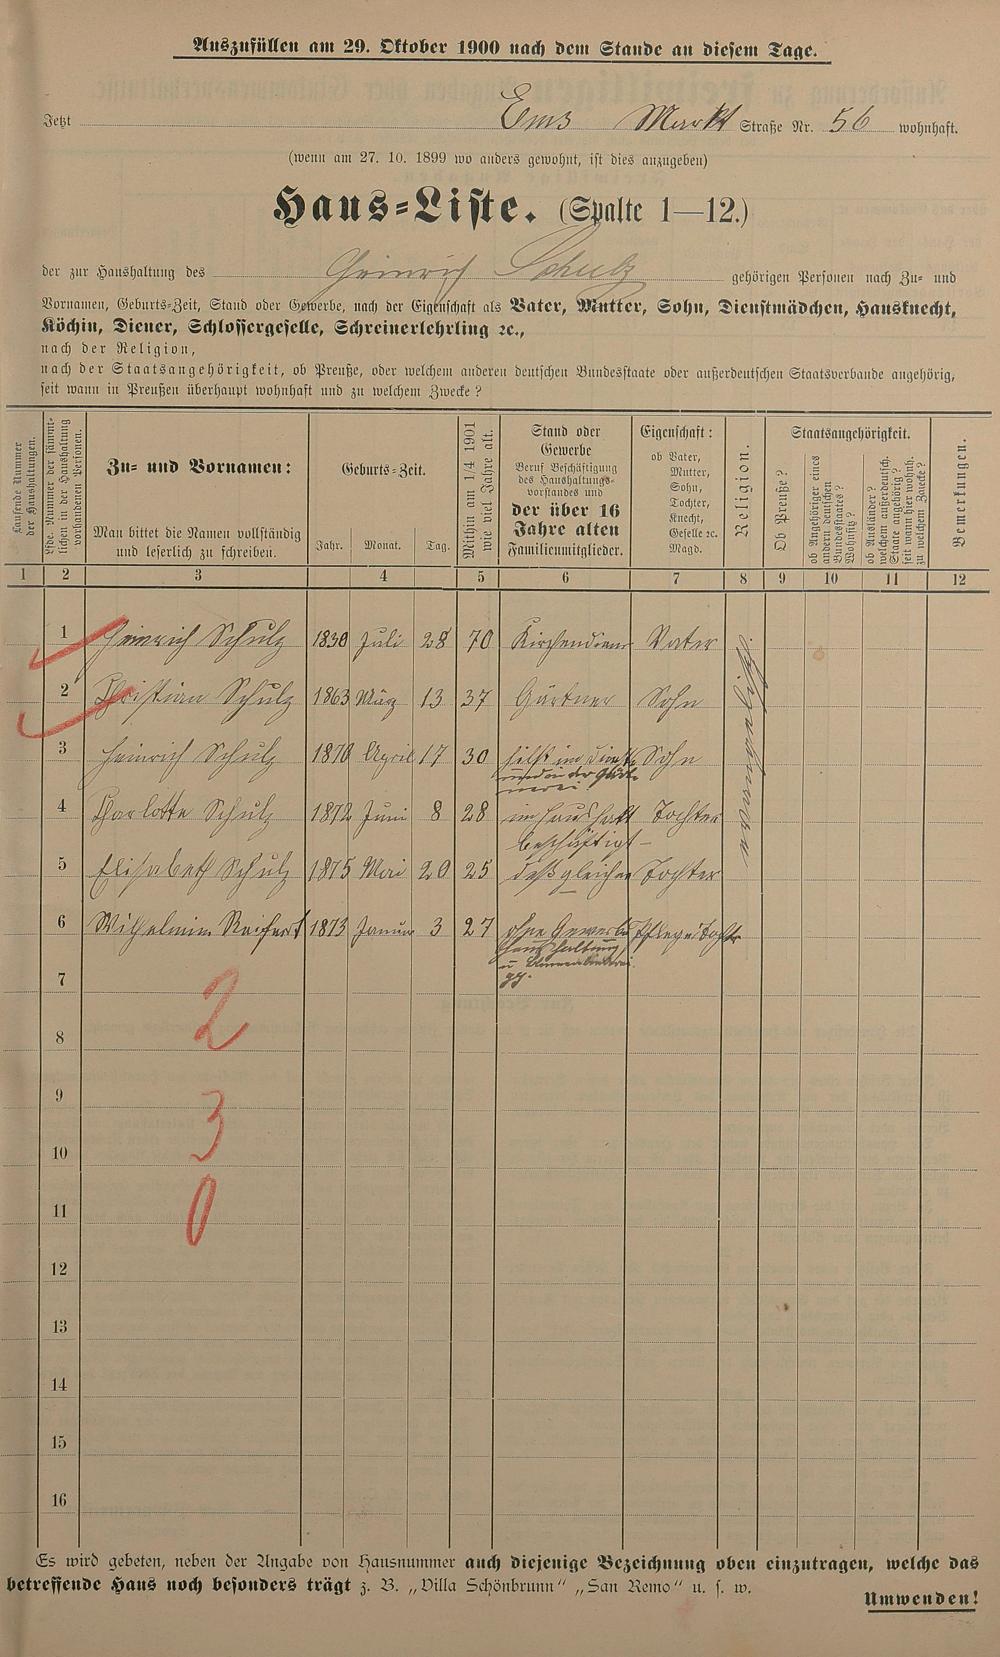 Auszufüllen am 29. Oktober 1900 nach dem Stande an diesem Tage.
Jetzt Ems Markt Straße Nr. 56 wohnhaft.
(wenn am 27. 10. 1899 wo anders gewohnt, ist dies anzugeben)
Haus-Liste. (Spalte 1—12.)
der zur Haushaltung des Heinrich Schulz gehörigen Personen nach Zu- und
Vornamen, Geburts-Zeit, Stand oder Gewerbe, nach der Eigenschaft als Vater, Mutter, Sohn, Dienstmädchen, Hausknecht,
Köchin, Diener, Schlossergeselle, Schreinerlehrling ꝛc.,
nach der Religion,
nach der Staatsangehörigkeit, ob Preuße, oder welchem anderen deutschen Bundesstaate oder außerdeutschen Staatsverbande angehörig,
seit wann in Preußen überhaupt wohnhaft und zu welchem Zwecke?
Laufende Nummer
der Haushaltungen.
Lfde. Nummer der sämmt-
lichen in der Haushaltung
vorhandenen Personen.
Zu- und Vornamen:
Man bittet die Namen vollständig
und leserlich zu schreiben.
Geburts-Zeit.
Jahr. Monat. Tag.
Mithin am 1/4 1901
wie viel Jahre alt.
Stand oder
Gewerbe
Beruf Beschäftigung
des Haushaltungs-
vorstandes und
der über 16
Jahre alten
Familienmitglieder.
Eigenschaft:
ob Vater,
Mutter,
Sohn,
Tochter,
Knecht,
Geselle ꝛc.
Magd.
Religion.
Staatsangehörigkeit.
Ob Preuße?
ob Angehöriger eines
andern deutschen
Bundesstaates?
Wohnsitz?
ob Ausländer?
welchem außerdeutsch.
Staate angehörig?
seit wann hier wohnh.
zu welchem Zwecke?
Bemerkungen.
1 2 3 4 5 6 7 8 9 10 11 12
1 Heinrich Schulz 1830 Juli 28 70 Kirchendiener Vater
2 Christian Schulz 1863 März 13 37 Gärtner Sohn
3 Heinrich Schulz 1870 April 17 30 hilft im Dienst Sohn
und in der Gärt-
nerei
4 Charlotte Schulz 1872 Juni 8 28 im Haushalt Tochter
beschäftigt
5 Elisabeth Schulz 1875 Mai 20 25 desgleichen Tochter
6 Wilhelmine Reifert 1873 Januar 3 27 ohne Gewerbe Pflege Tochter
Haushaltung
u
7
2
8
9
3
10
11
0
12
13
14
15
16
Es wird gebeten, neben der Angabe von Hausnummer auch diejenige Bezeichnung oben einzutragen, welche das
betreffende Haus noch besonders trägt z. B. „Villa Schönbrunn" „San Remo" u. s. w.
Umwenden!